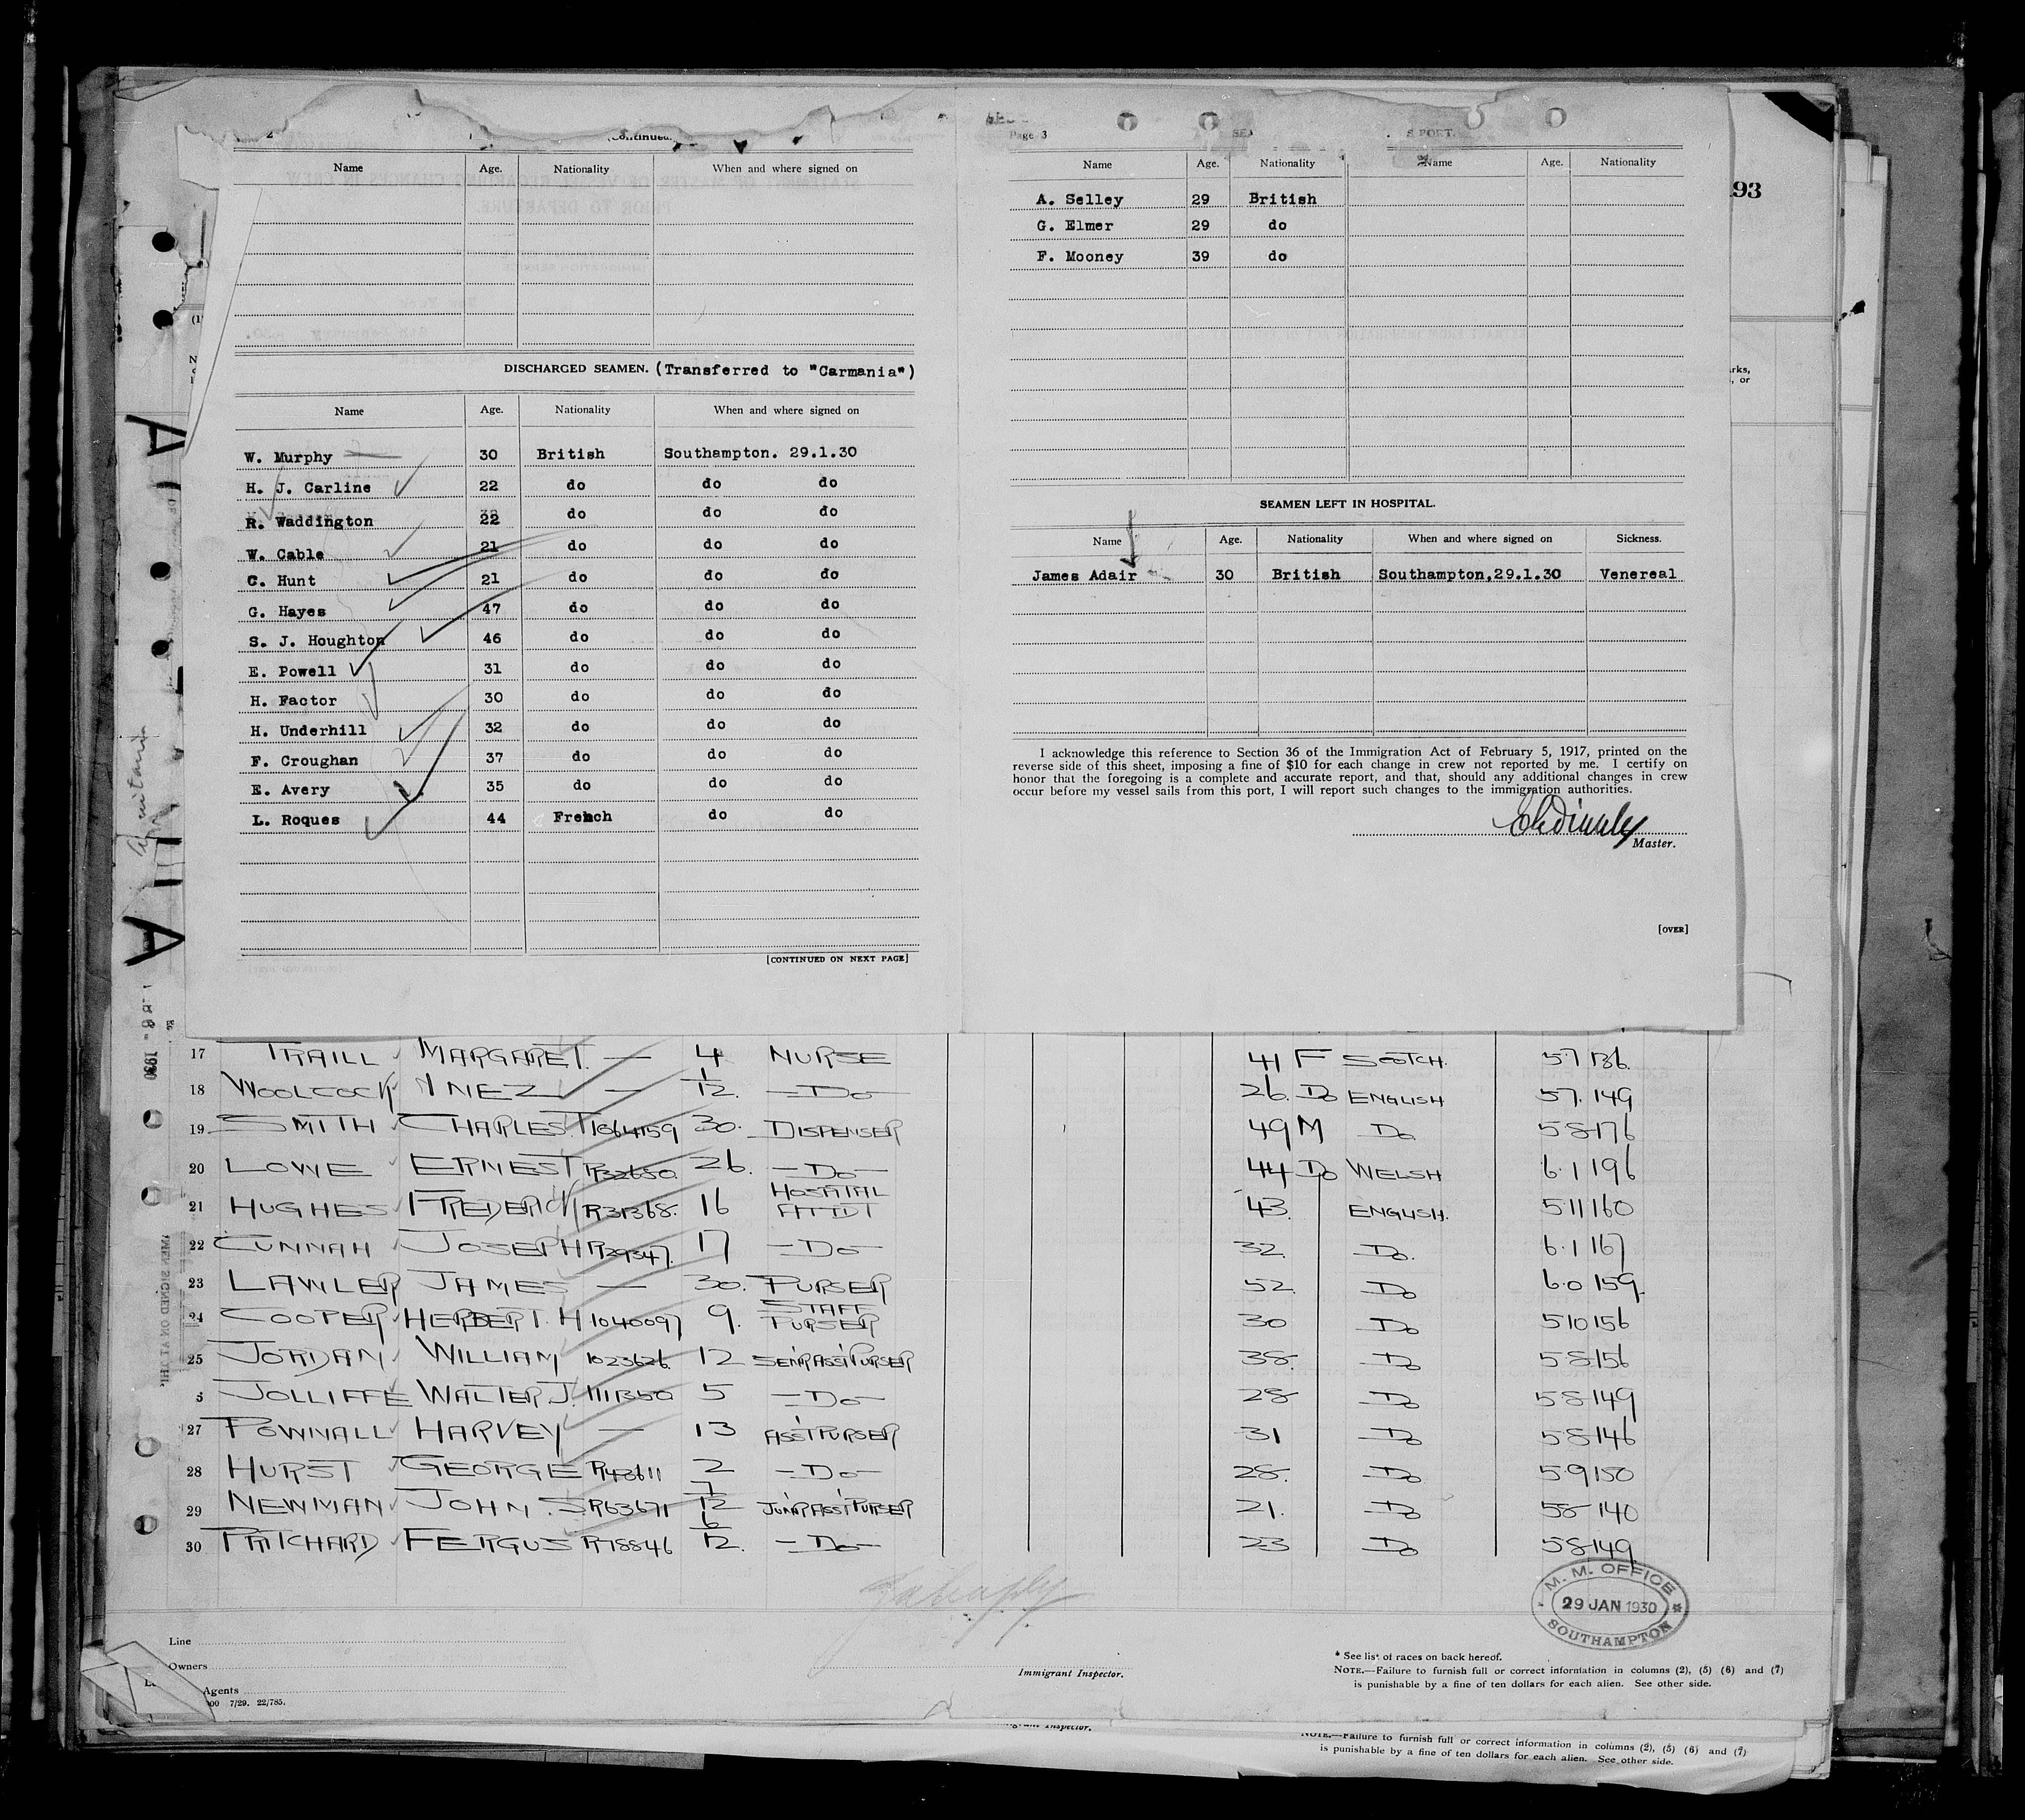 2
(Continued
Name Age. Nationality When and where signed on
DISCHARGED SEAMEN. (Transferred to "Carmania")
Name Age. Nationality When and where signed on
W. Murphy 30 British Southampton. 29.1.30
H. J. Carline 22 do do do
R. Waddington 22 do do do
W. Cable 21 do do do
C. Hunt 21 do do do
G. Hayes 47 do do do
S. J. Houghton 46 do do do
E. Powell 31 do do do
H. Factor 30 do do do
H. Underhill 32 do do do
F. Croughan 37 do do do
E. Avery 35 do do do
L. Roques 44 French do do
[CONTINUED ON NEXT PAGE]
Page 3
S PORT.
Name Age. Nationality Name Age. Nationality
A. Selley 29 British
G. Elmer 29 do
F. Mooney 39 do
SEAMEN LEFT IN HOSPITAL.
Name Age. Nationality When and where signed on Sickness.
James Adair 30 British Southampton.29.1.30 Venereal
I acknowledge this reference to Section 36 of the Immigration Act of February 5, 1917, printed on the
reverse side of this sheet, imposing a fine of $10 for each change in crew not reported by me. I certify on
honor that the foregoing is a complete and accurate report, and that, should any additional changes in crew
occur before my vessel sails from this port, I will report such changes to the immigration authorities.
Master.
[OVER]
93
rks,
, or
Aquitania
1930
17 TRAILL MARGARET. — 4 NURSE 41 F SCOTCH. 5.7 136.
18 WOOLCOCK INEZ — 1/12. —Do— 26. Do ENGLISH 5.7. 149
19 SMITH CHARLES.T 1064159 30. DISPENSER 49 M Do 5.8 176
20 LOWE ERNEST R32650. 26. —Do— 44 Do WELSH 6.1 196
21 HUGHES FREDERICK R31368. 16 HOSPITAL ATTDT 43. ENGLISH. 5.11 160
22 CUNNAH JOSEPH R29347. 17 —Do— 32. Do. 6.1 167
23 LAWLER JAMES — 30. PURSER 52. Do 6.0 159.
24 COOPER HERBERT. H 1040097 9. STAFF PURSER 30 Do 5.10 156
25 JORDAN WILLIAM 1023626. 12 SENR ASST PURSER 38. Do 5.8 156
JOLLIFFE WALTER J. 1111350 5 —Do— 28 Do 5.8 149
27 POWNALL HARVEY — 13 ASST PURSER 31 Do 5.8 146
28 HURST GEORGE R43611 2 —Do— 28. Do 5.9 150
29 NEWMAN JOHN. S. R63671 7/12 JUNR ASST PURSER 21. Do 5.8 140
30 PRITCHARD FERGUS R78846 6/12. —Do— 23 Do 5.8 149
M. M. OFFICE
29 JAN 1930
SOUTHAMPTON
Line
Owners
Agents
00 7/29. 22/785.
Immigrant Inspector.
* See list of races on back hereof.
NOTE.—Failure to furnish full or correct information in columns (2), (5) (6) and (7)
is punishable by a fine of ten dollars for each alien. See other side.
Inspector.
NOTE.—Failure to furnish full or correct information in columns (2), (5) (6) and (7)
is punishable by a fine of ten dollars for each alien. See other side.